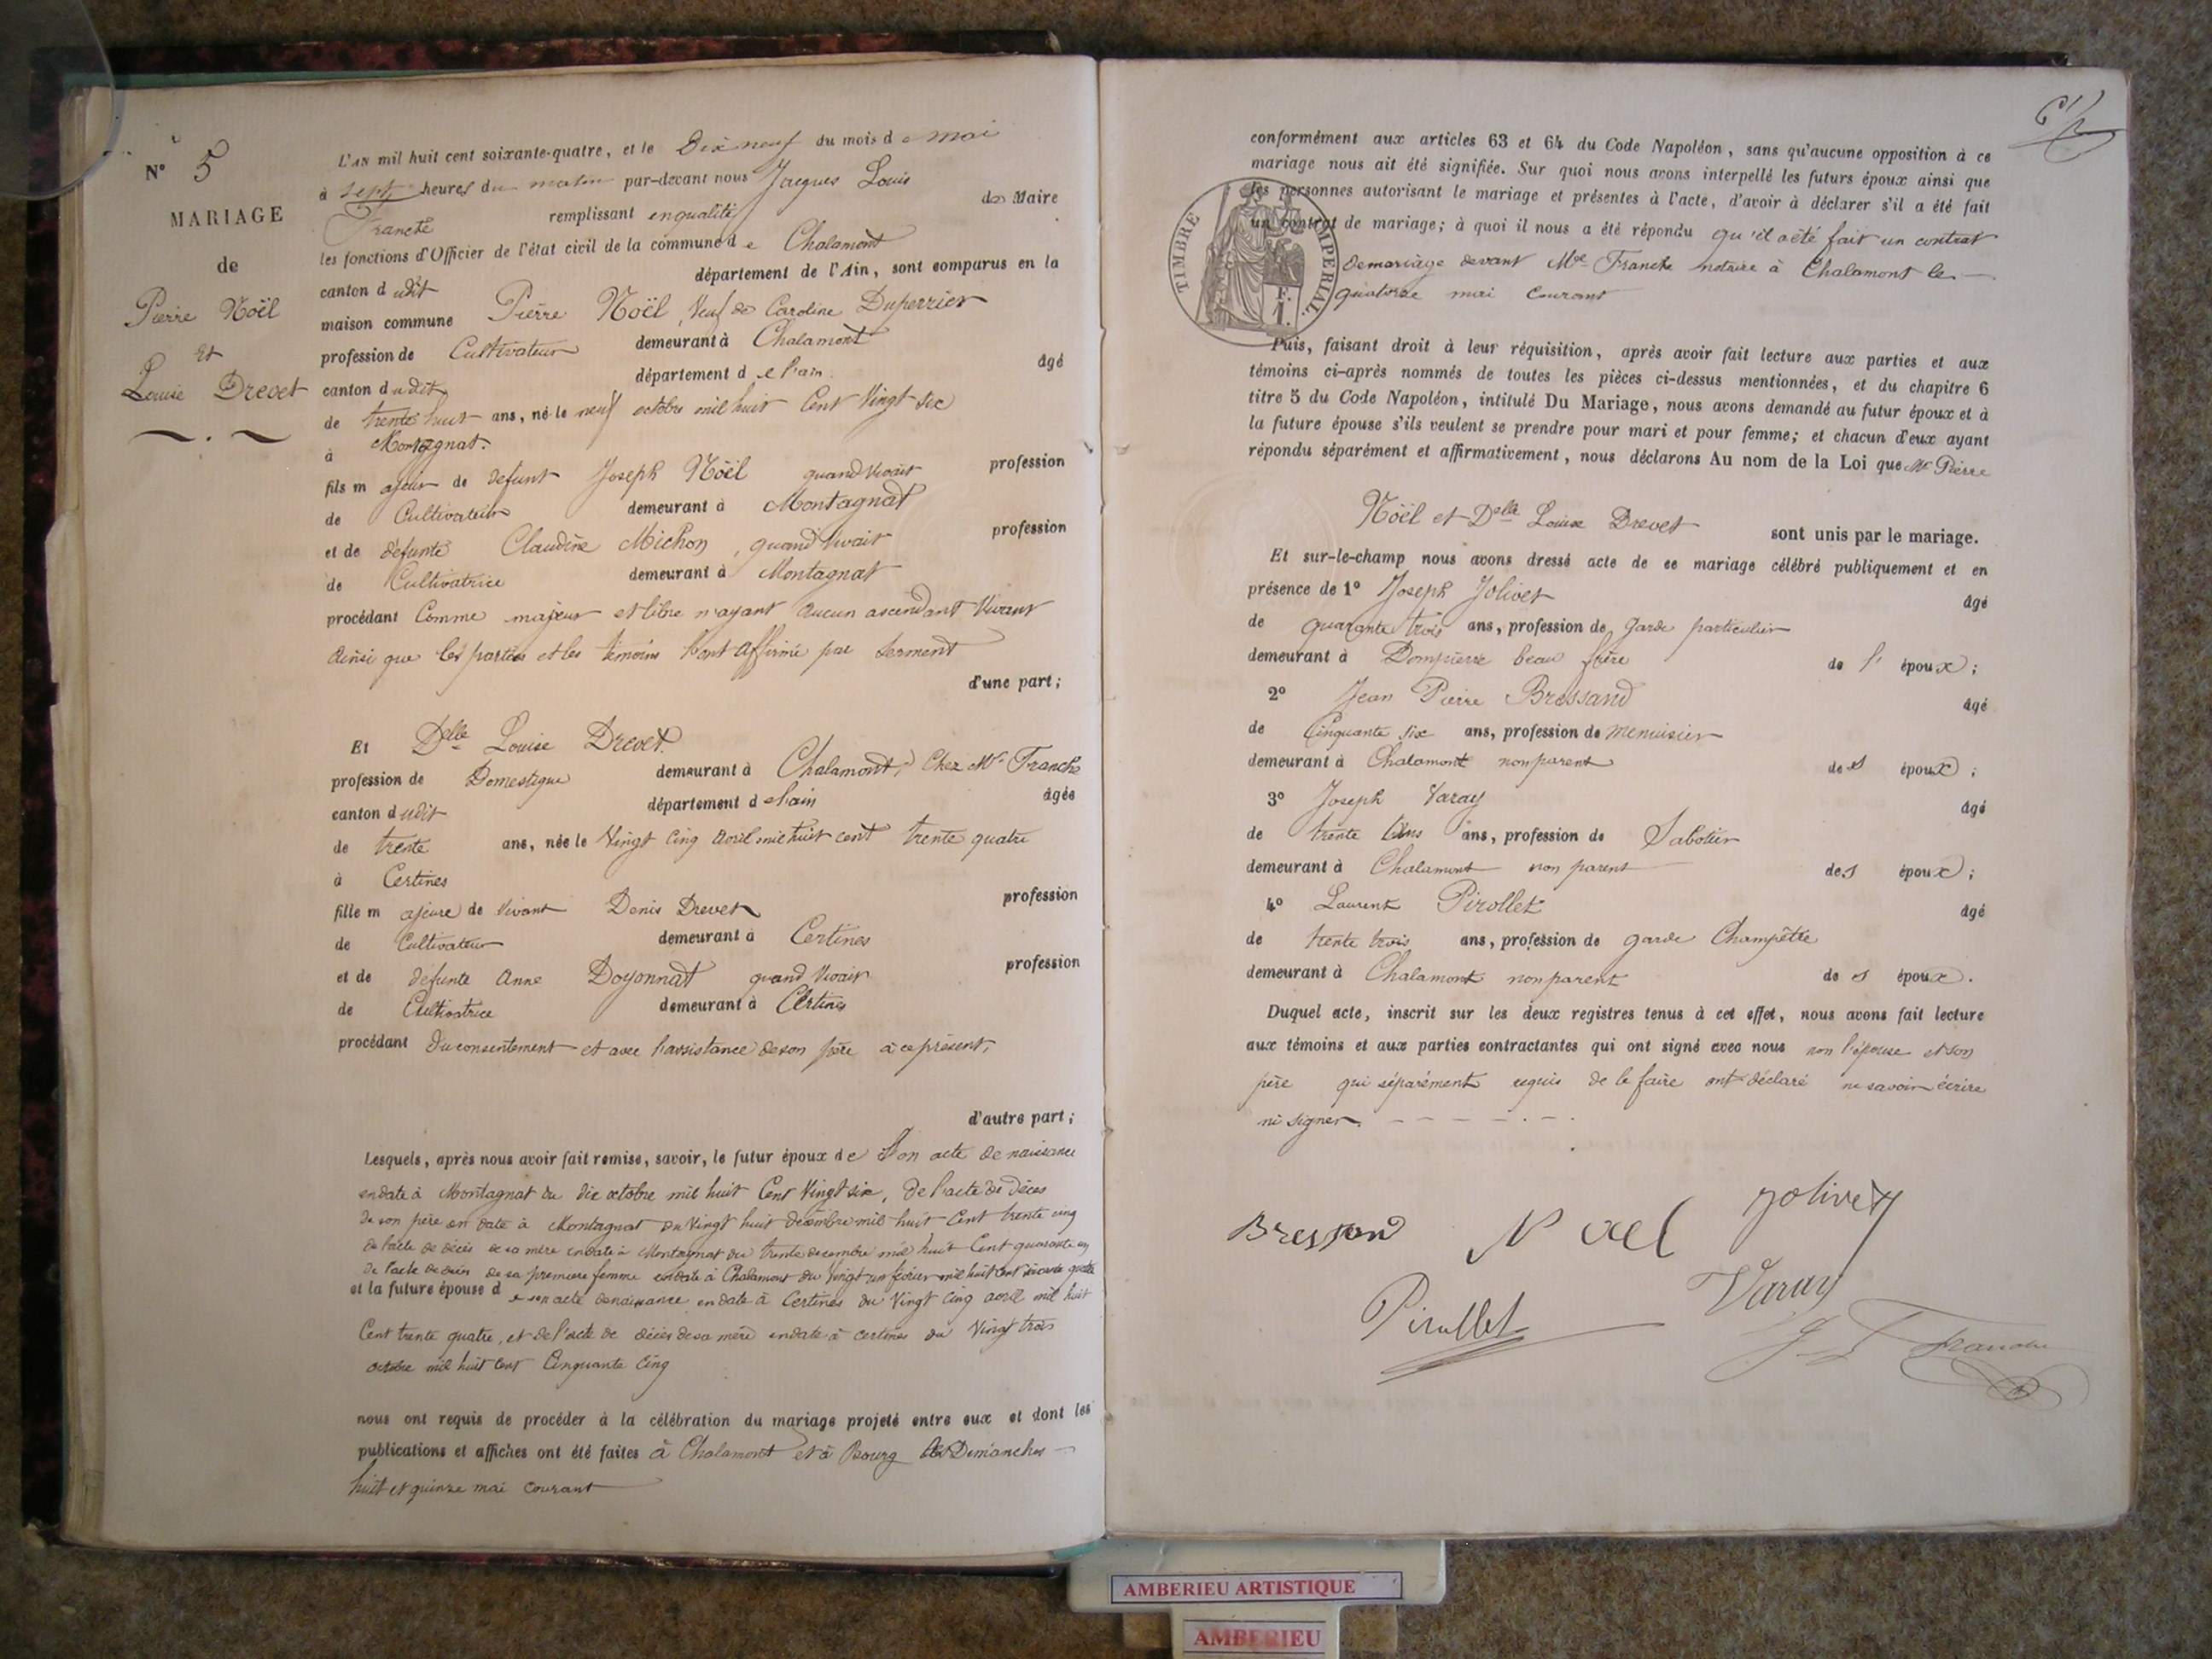 N° 5
MARIAGE
de
Pierre Noël
et
Louise Drevet
L'AN mil huit cent soixante-quatre, et le Dix neuf du mois de mai
à sept heures du matin par-devant nous Jacques Louis
Franche remplissant en qualité de Maire
les fonctions d'Officier de l'état civil de la commune de Chalamont
canton dudit département de l'Ain, sont comparus en la
maison commune Pierre Noël, Veuf de Caroline Duperrier
profession de Cultivateur demeurant à Chalamont
canton dudit département de l'ain âgé
de trente huit ans, né le neuf octobre mil huit Cent Vingt six
à Montagnat.
fils majeur de defunt Joseph Noël quand Vivait profession
de Cultivateur demeurant à Montagnat
et de défunte Claudine Michon, quand Vivait profession
de Cultivatrice demeurant à Montagnat
procédant Comme majeur et libre n'ayant aucun ascendant Vivant
ainsi que les parties et les témoins l'ont affirmé par serment
d'une part;
Et Delle Louise Drevet.
profession de Domestique demeurant à Chalamont, Chez Mr Franche
canton dudit département de l'ain âgée
de trente ans, née le Vingt Cinq avril mil huit cent trente quatre
à Certines
fille majeure de Vivant Denis Drevet profession
de Cultivateur demeurant à Certines
et de défunte Anne Doyonnat quand Vivait profession
de Cultivatrice demeurant à Certines
procédant du consentement et avec l'assistance de son père à ce présent,
d'autre part;
Lesquels, après nous avoir fait remise, savoir, le futur époux de Son acte de naissance
en date à Montagnat du dix octobre mil huit Cent Vingt six, de l'acte de décès
de son père en date à Montagnat du Vingt huit décembre mil huit Cent trente cinq
de l'acte de décès de sa mère en date à Montagnat du trente decembre mil huit Cent quarante un
de l'acte de décès de sa premiere femme en date à Chalamont du Vingt un février mil huit Cent soixante quatre
et la future épouse de son acte de naissance en date à Certines du Vingt Cinq avril mil huit
Cent trente quatre, et de l'acte de décès de sa mère en date à certines du Vingt trois
octobre mil huit Cent Cinquante Cinq
nous ont requis de procéder à la célébration du mariage projeté entre eux et dont les
publications et affiches ont été faites à Chalamont et à Bourg les Dimanches
huit et quinze mai courant
conformément aux articles 63 et 64 du Code Napoléon, sans qu'aucune opposition à ce
mariage nous ait été signifiée. Sur quoi nous avons interpellé les futurs époux ainsi que
les personnes autorisant le mariage et présentes à l'acte, d'avoir à déclarer s'il a été fait
un contrat de mariage; à quoi il nous a été répondu qu'il a été fait un contrat
de mariage devant Me Franche notaire à Chalamont le
quatorze mai Courant
TIMBRE IMPERIAL
F.
1.
Puis, faisant droit à leur réquisition, après avoir fait lecture aux parties et aux
témoins ci-après nommés de toutes les pièces ci-dessus mentionnées, et du chapitre 6
titre 5 du Code Napoléon, intitulé Du Mariage, nous avons demandé au futur époux et à
la future épouse s'ils veulent se prendre pour mari et pour femme; et chacun d'eux ayant
répondu séparément et affirmativement, nous déclarons Au nom de la Loi que Mr Pierre
Noël et Delle Louise Drevet sont unis par le mariage.
Et sur-le-champ nous avons dressé acte de ce mariage célébré publiquement et en
présence de 1° Joseph Jolivet âgé
de quarante trois ans, profession de Garde particulier
demeurant à Dompierre beau frère de l' époux;
2° Jean Pierre Bressand âgé
de Cinquante six ans, profession de menuisier
demeurant à Chalamont non parent des époux;
3° Joseph Varay âgé
de trente ans, profession de Sabotier
demeurant à Chalamont non parent des époux;
4° Laurent Pirollet âgé
de trente trois ans, profession de garde Champêtre
demeurant à Chalamont non parent des époux.
Duquel acte, inscrit sur les deux registres tenus à cet effet, nous avons fait lecture
aux témoins et aux parties contractantes qui ont signé avec nous non l'épouse et son
père qui séparément requis de le faire ont déclaré ne savoir écrire
ni signer.
Bressand Noel Jolivet
Pirollet Varay
J L Franche
AMBERIEU ARTISTIQUE
AMBERIEU